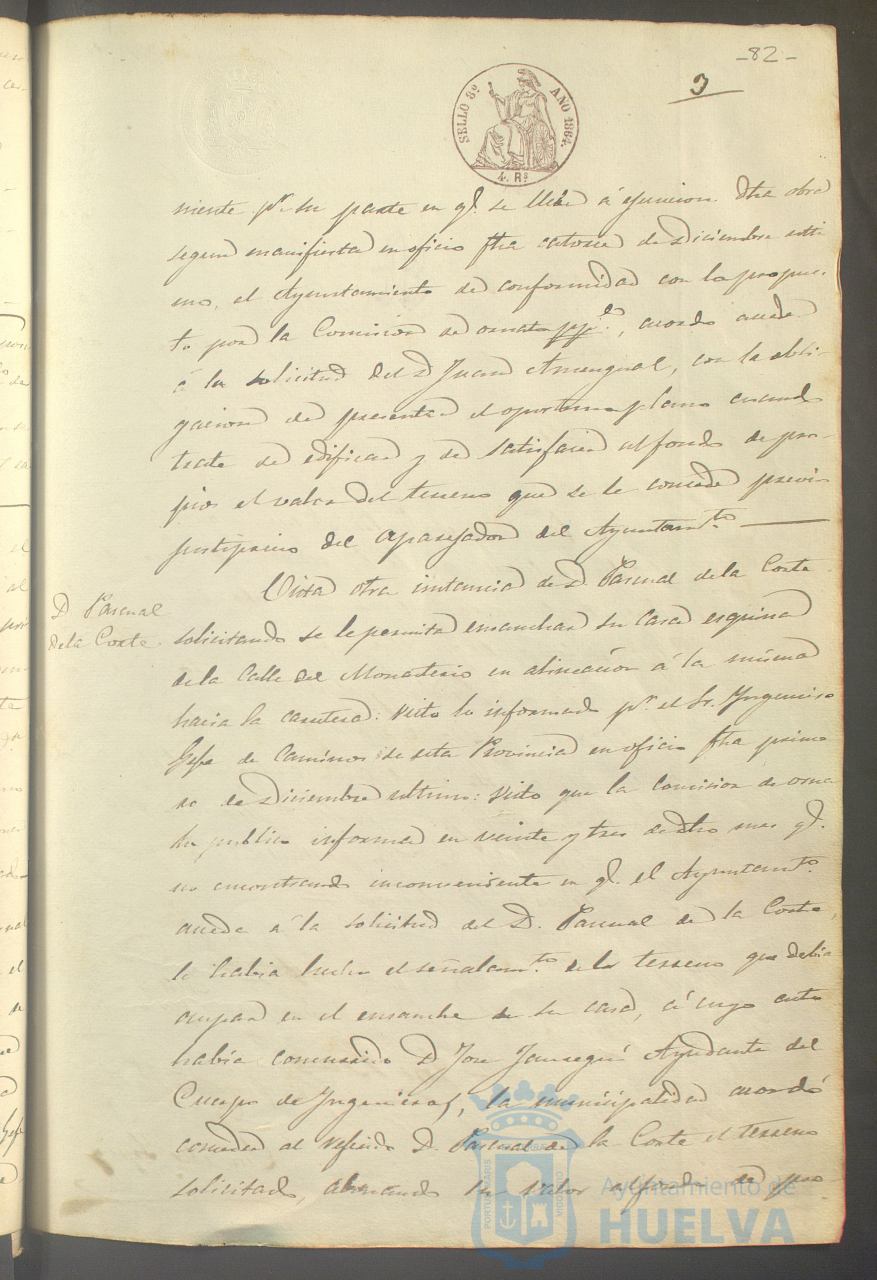 -82-
3
SELLO 8º AÑO 1864.
4. Rs
niente pr. su parte en qe. se lleve á ejecucion dha obra
segun manifiesta en oficio fha catorce de Diciembre ulti
mo, el Ayuntamiento de conformidad con lo propues-
to por la Comision de ornato pp.co, acordó acceder
á la solicitud del D Juan Amengual, con la obli-
gacion de presentar el oportuno plano cuando
trate de edificar y de satisfacer al fondo de pro-
pios el valor del terreno que se le concede previo
justiprecio del aparejador del Ayuntamto.
D Pascual
de la Corte
Vista otra instancia de D Pascual de la Corte
solicitando se le permita ensanchar su casa esquina
de la Calle del Monasterio en alineacion á la misma
hacia la carretera: visto lo informado pr. el Sr. Ingeniero
Gefe de Caminos de esta Provincia en oficio fha prime
ro de Diciembre ultimo: visto que la Comision de orna
to publico informa en veinte y tres de dho mes qe.
no encontrando inconveniente en qe. el Ayuntamto.
acceda á la solicitud del D. Pascual de la Corte,
le habia hecho el señalamto. del terreno que debia
ocupar en el ensanche de su casa, á cuyo acto
habia concurrido D Jose Ayudante del
Cuerpo de Ingenieros, la municipalidad acordó
conceder al referido D. Pascual de la Corte el terreno
solicitado, abonando su valor al fondo de pro-
PORTUS MARIS
Ayuntamiento de
HUELVA